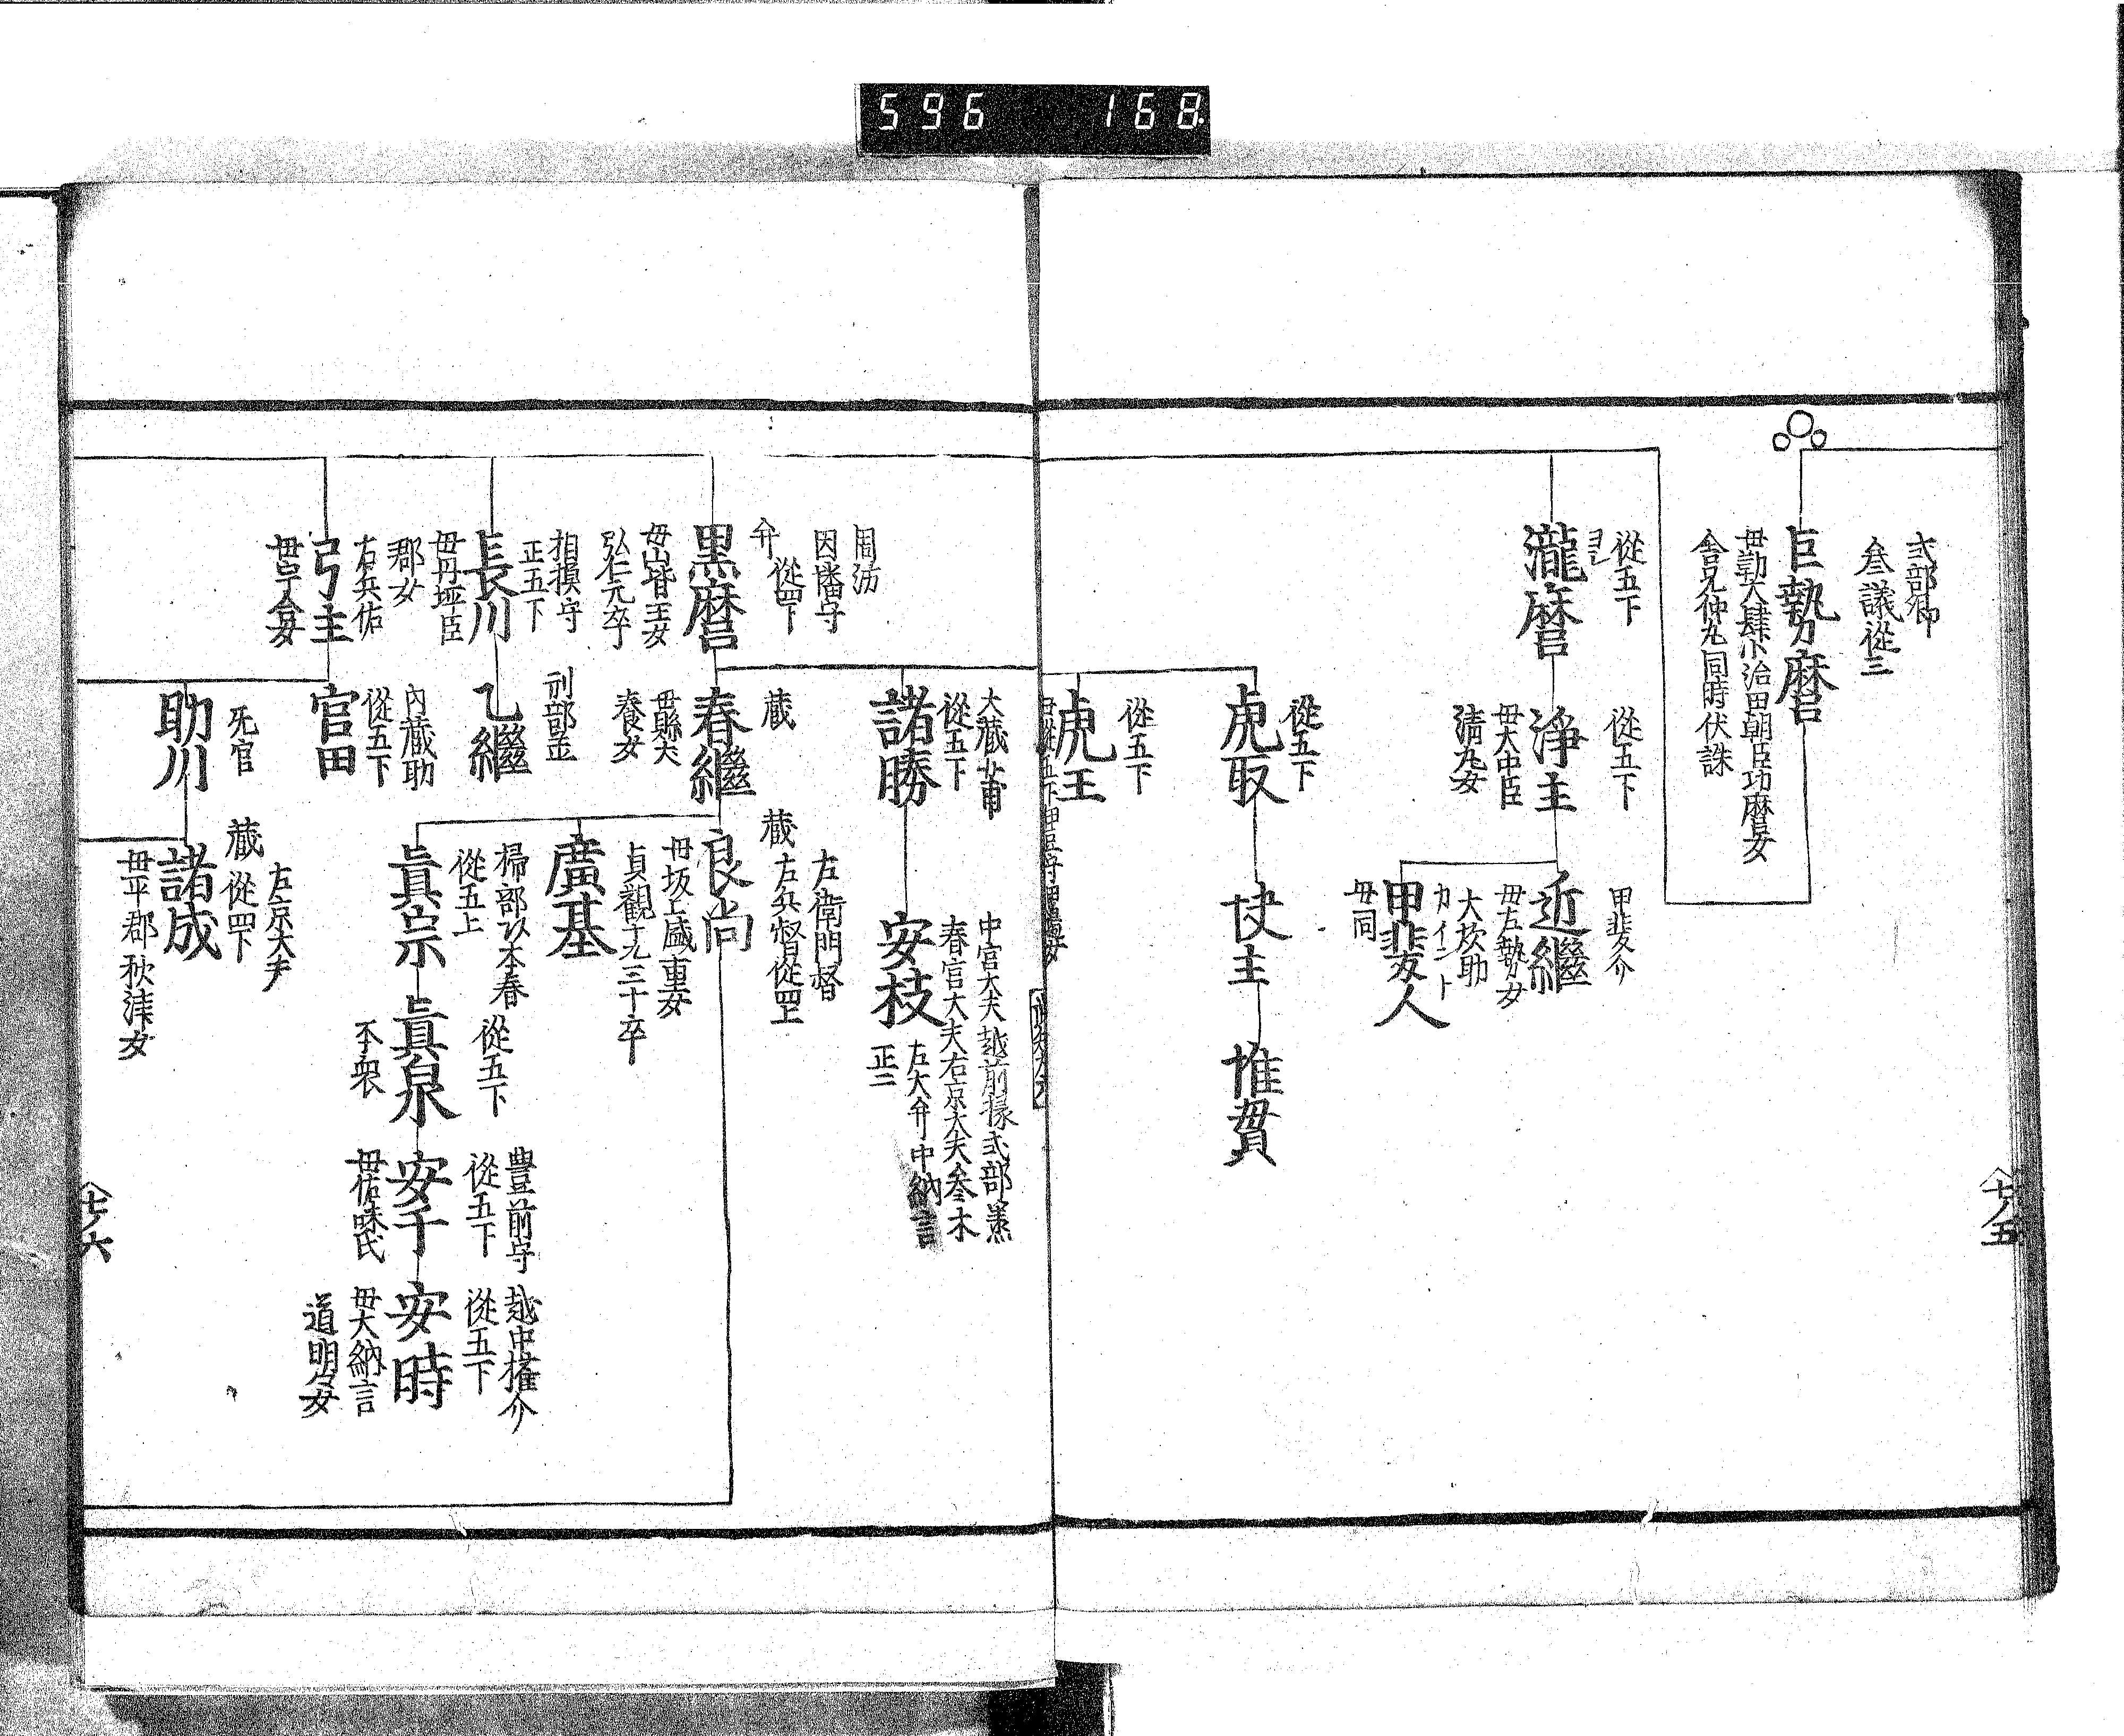 596 168
式部卿
参議從三
巨勢麿
母勅大肆小治田朝臣功麿女
舎兄仲丸同時伏誅
從五下
瀧麿
從五下
淨主
母大中臣
清丸女
甲斐介
近繼
母左勢女
大炊助
カイノ
甲斐人
母同
從五下
虎取
惟貫
從五下
虎主
大蔵少輔
從五下
諸勝
中宮大夫越前様式部
春宮大夫右京大夫参木
左大弁中納言
正三
安枝
周防
因幡守
從四下
弁
黒麿
母山背王女
弘仁元卒
蔵
春繼
母縣犬
養女
蔵
左衛門督
左兵督從四上
良尚
母坂上盛重女
貞觀十九三十卒
廣基
掃部以本春
從五上
眞宗
從五下
眞泉
不衆
豊前守
從五下
安千
母佐味氏
越中権介
從五下
安時
母大納言
道明女
相摸守
正五下
長川
母丹埀臣
郡女
刑部丞
乙繼
右兵佐
弓主
内蔵助
從五下
官田
死官
助川
蔵
左京大夫
從四下
諸成
母平郡秋津女
七ノ五
七ノ六